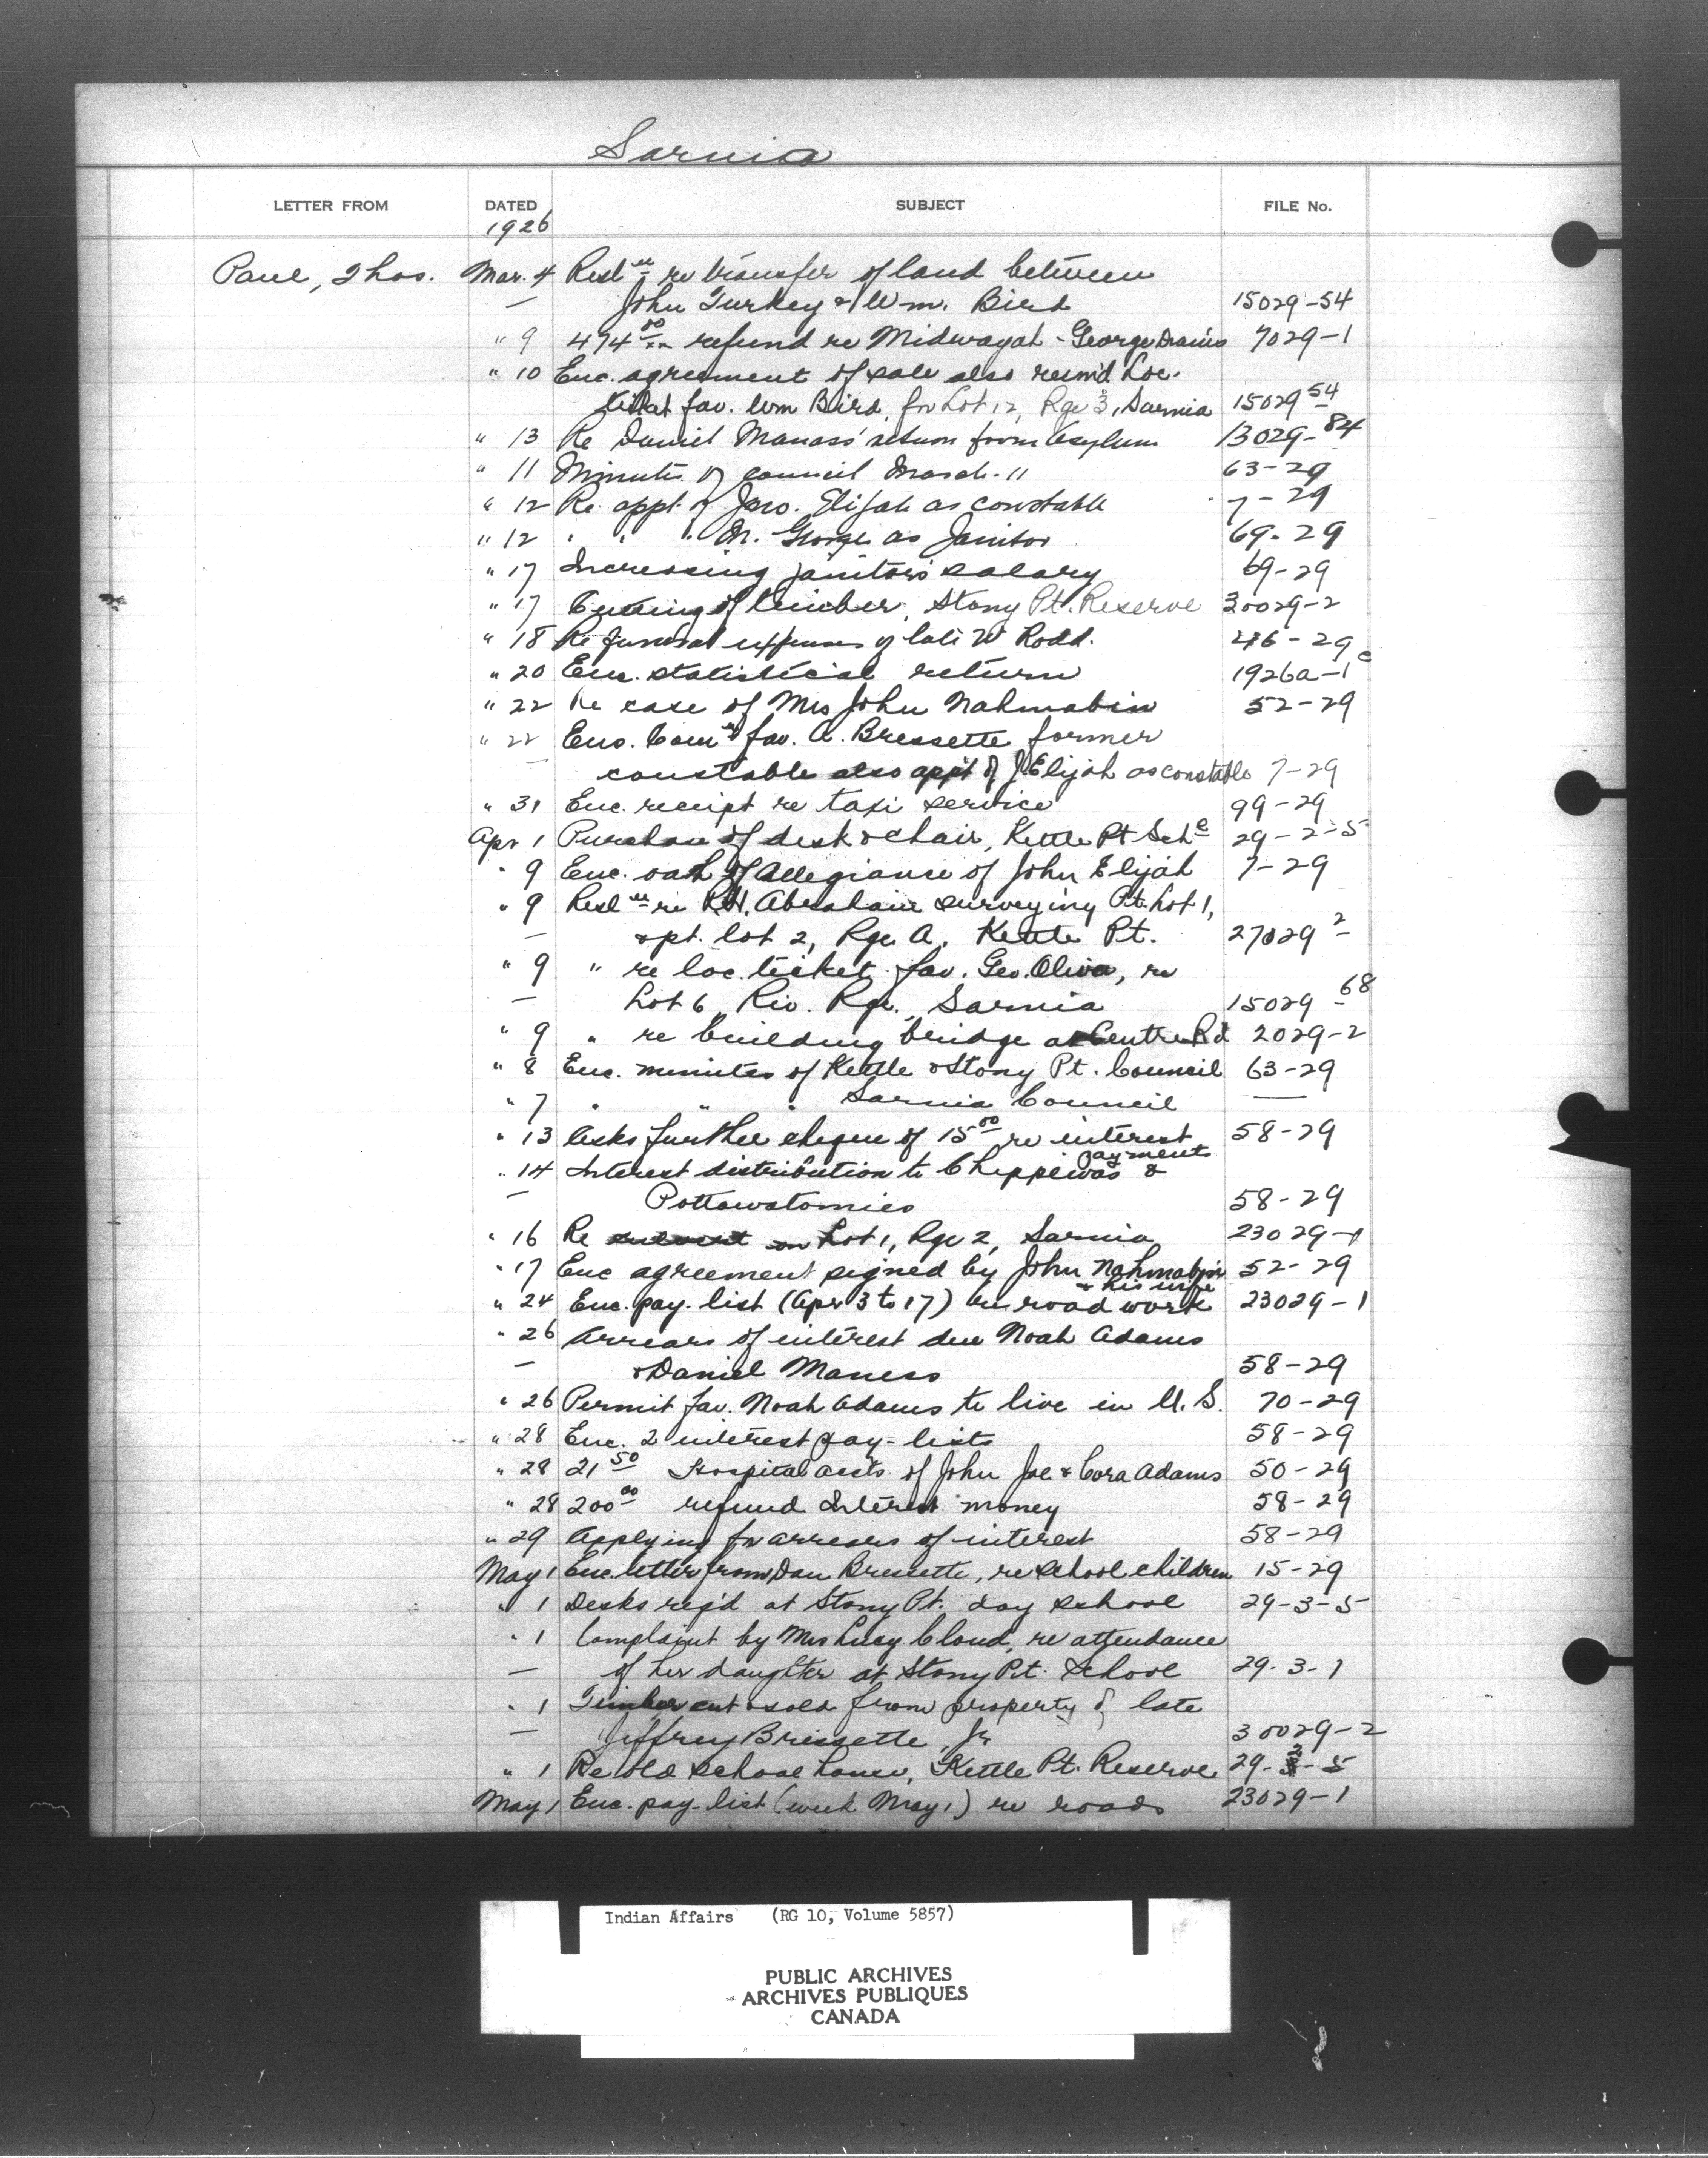 Sarnia
LETTER FROM DATED SUBJECT FILE No.
1926
Paul, Thos. Mar. 4 Resln re transfer of land between
— John Turkey & Wm. Bird 15029-54
" 9 474 00/xx refund re Midwayah - George Davis 7029-1
" 10 Enc. agreement of sale also resm'd Loc.
ticket fav. Wm Bird, for Lot 12, Rge 3, Sarnia 15029-54
" 13 Re Daniel Manass' return from Asylum 13029-84
" 11 Minutes of council March 11 63-29
" 12 Re appt. of Jno. Elijah as constable 7-29
" 12 " " " M. George as Janitor 69-29
" 17 Increasing janitors salary 69-29
" 17 Cutting of timber, Stony Pt. Reserve 30029-2
" 18 Re funeral expenses of late W Rodd. 46-29
" 20 Enc. statistical return 1926a-1c
" 22 Re case of Mrs John Nahmabin 52-29
" 22 Enc. Comn fav. A. Bressette former
— constable also app't of J. Elijah as constable 7-29
" 31 Enc. receipt re taxi service 99-29
Apr 1 Purchase of desk & chair, Kettle Pt Sche 29-2-5
" 9 Enc. oath of Allegiance of John Elijah 7-29
" 9 Resln re R.H. Abraham surveying Pt. Lot 1,
— & pt. lot 2, Rge A, Kettle Pt. 27029-2
" 9 " re loc. ticket fav. Geo. Oliver, re
— Lot 6, Riv. Rge., Sarnia 15029-68
" 9 " re building bridge at Centre Rd 2029-2
" 8 Enc. minutes of Kettle & Stony Pt. Council 63-29
" 7 " " " Sarnia Council —
" 13 Asks further cheque of 15 00 re interest 58-29
payments
" 14 Interest distribution to Chippewas &
— Pottawatomies 58-29
" 16 Re Lot 1, Rge 2, Sarnia 23029-1
" 17 Enc agreement signed by John Nahmabin 52-29
& his wife
" 24 Enc. pay. list (Apr 3 to 17) re road work 23029-1
" 26 Arrears of interest due Noah Adams
— & Daniel Maness 58-29
" 26 Permit fav. Noah Adams to live in U.S. 70-29
" 28 Enc. 2 interest pay-lists 58-29
" 28 21 50 Hospital accts of John Joe & Cora Adams 50-29
" 28 200 00 refund Interest money 58-29
" 29 Applying for arrears of interest 58-29
May 1 Enc. letter from Dan Bressette, re school children 15-29
" 1 Desks req'd at Stony Pt. day school 29-3-5
" 1 Complaint by Mrs Lucy Cloud, re attendance
— of her daughter at Stony Pt. School 29-3-1
" 1 Timber cut & sold from property of late
— Jeffrey Bressette, Jr. 30029-2
" 1 Re old school house, Kettle Pt. Reserve 29-2-5
May 1 Enc. pay-list (week May 1) re roads 23029-1
Indian Affairs (RG 10, Volume 5857)
PUBLIC ARCHIVES
ARCHIVES PUBLIQUES
CANADA